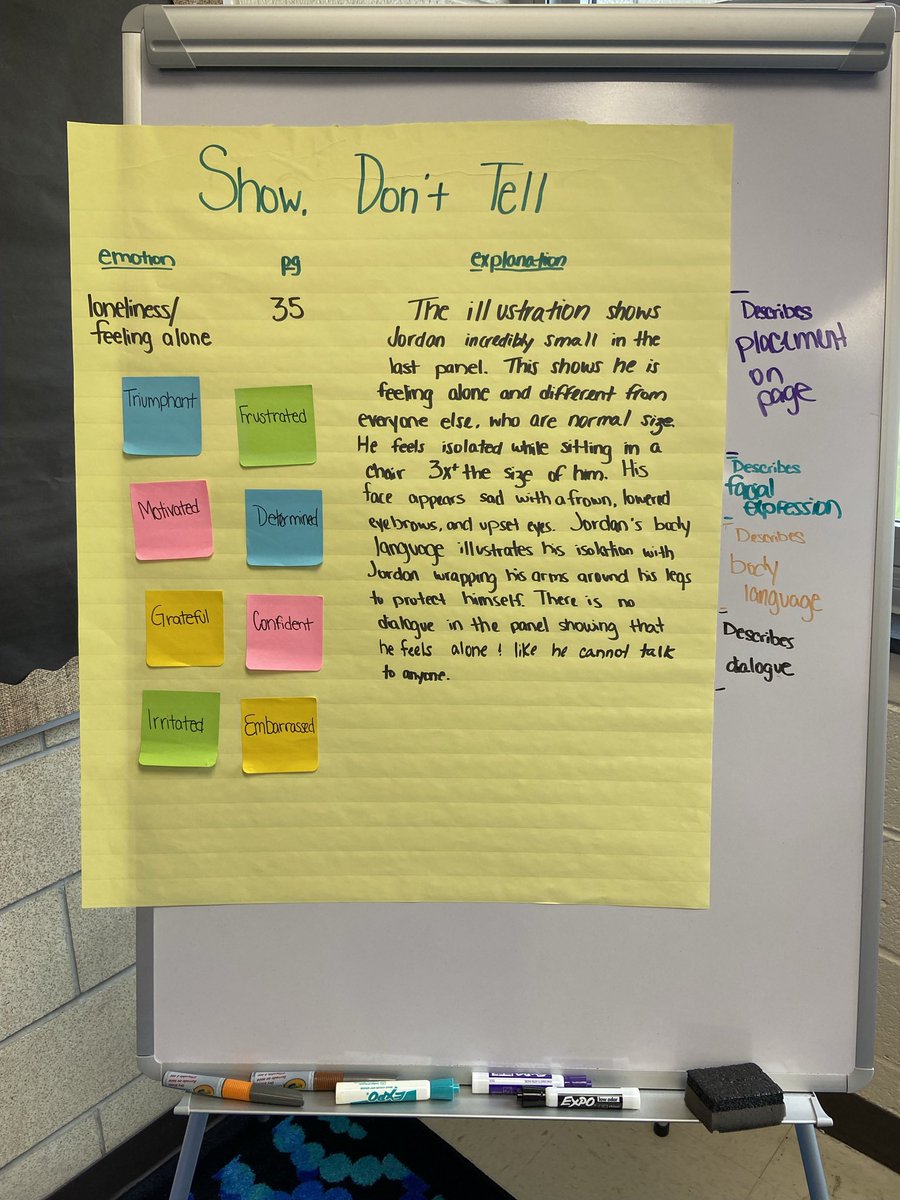 Show, Don't Tell
emotion pg explanation
loneliness/
feeling alone
35
The illustration shows
Jordan incredibly small in the
last panel. This shows he is
feeling alone and different from
everyone else, who are normal size.
He feels isolated while sitting in a
chair 3x+ the size of him. His
face appears sad with a frown, lowered
eyebrows, and upset eyes. Jordan's body
language illustrates his isolation with
Jordan wrapping his arms around his legs
to protect himself. There is no
dialogue in the panel showing that
he feels alone & like he cannot talk
to anyone.
Triumphant
Frustrated
Motivated
Determined
Grateful
Confident
Irritated
Embarrassed
Describes
placement
on
page
Describes
facial
expression
Describes
body
language
Describes
dialogue
EXPO
EXPO
low odor